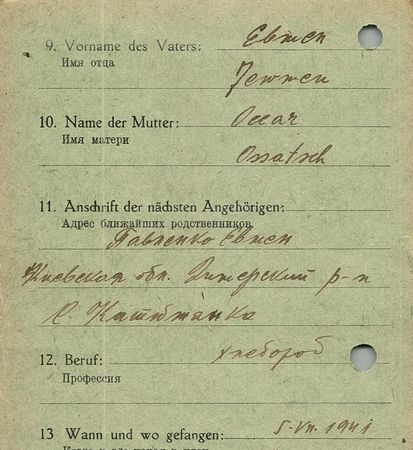 9. Vorname des Vaters: Евмен
Имя отца
Jewmen
10. Name der Mutter:
Имя матери
Ossatsch
11. Anschrift der nächsten Angehörigen:
Адрес ближайших родственников
Павленко Евмен
Киевская обл. Димерский р-н
с.
12. Beruf: хлебороб
Профессия
13 Wann und wo gefangen: 5. VII. 1941